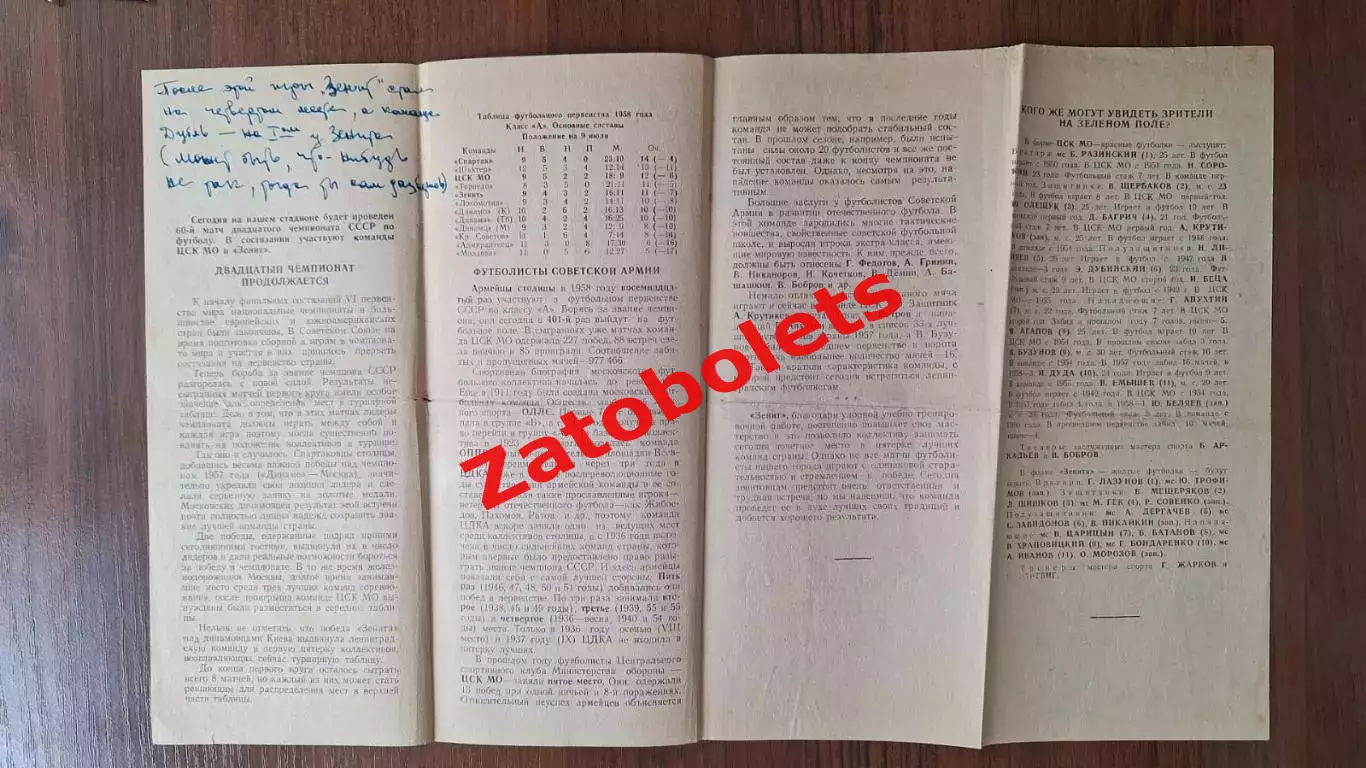 После этой игры "Зенит" стал
на четвертом месте, а команда
Дубль — на Iом у Зенита
(может быть, что-нибудь
не так, тогда ты сам
Сегодня на нашем стадионе будет проведен
60-й матч двадцатого чемпионата СССР по
футболу. В состязании участвуют команды
ЦСК МО и «Зенит».
ДВАДЦАТЫЙ ЧЕМПИОНАТ
ПРОДОЛЖАЕТСЯ
К началу финальных состязаний VI первен-
ства мира национальные чемпионаты в боль-
шинстве европейских и южноамериканских
стран были закончены. В Советском Союзе на
время подготовки сборной к играм в чемпиона-
те мира и участия в них пришлось прервать
состязания на первенство страны.
Теперь борьба за звание чемпиона СССР
разгорелась с новой силой. Результаты не-
сыгранных матчей первого круга имели особое
значение для соседей мест в турнирной
таблице. Дело в том, что в этих матчах лидеры
чемпионата должны играть между собой и
каждая игра поэтому могла существенно по-
влиять на положение коллективов в турнире.
Так оно и случилось. Спартаковцы столицы,
добившись весьма важной победы над чемпио-
ном 1957 года («Динамо» Москва), значи-
тельно укрепили свои позиции лидера и сде-
лали серьезную заявку на золотые медали.
Московских динамовцев результат этой встречи
почти полностью лишил надежд сохранить зва-
ние лучшей команды страны.
Две победы, одержанные подряд нашими
сегодняшними гостями, выдвинули их в число
лидеров и дали реальные возможности бороться
за победу в чемпионате. В то же время желез-
нодорожники Москвы, долгое время занимав-
шие место среди трех лучших команд соревнова-
ния, после проигрыша команде ЦСК МО вы-
нуждены были разместиться в середине табли-
цы.
Нельзя не отметить, что победа «Зенита»
над динамовцами Киева выдвинула ленинград-
скую команду в первую пятерку коллективов,
возглавляющих сейчас турнирную таблицу.
До конца первого круга осталось сыграть
всего 8 матчей, но каждый из них, может стать
решающим для распределения мест в верхней
части таблицы.
Таблица футбольного первенства 1958 года
Класс «А». Основные составы
Положение на 9 июля
Команды И. В. Н. П. М. Оч.
«Спартак» 9 5 4 0 23:10 14 (—4)
«Шахтер» 12 5 3 4 12:14 13 (—11)
ЦСК МО 9 5 2 2 18:9 12 (—6)
«Торпедо» 8 3 5 0 21:11 11 (—5)
«Зенит» 9 4 3 2 16:11 11 (—7)
«Локомотив» 9 4 2 3 14:11 10 (—8)
«Динамо» (К) 10 2 6 2 16:13 10 (—10)
«Динамо» (Тб) 10 4 2 4 16:25 10 (—10)
«Динамо» (М) 9 4 1 4 12:9
«Кр. Советов» 11 3 2 6 7:14 8 (—14)
«Адмиралтеец» 11 3 0 8 17:30 6 (—16)
«Молдова» 11 0 5 6 12:27 5 (—17)
ФУТБОЛИСТЫ СОВЕТСКОЙ АРМИИ
Армейцы столицы в 1958 году восемнадца-
тый раз участвуют в футбольном первенстве
СССР по классу «А». Борясь за звание чемпи-
она, они сегодня в 401-й раз выйдут на фут-
больное поле. В сыгранных уже матчах коман-
да ЦСК МО одержала 227 побед, 88 встреч све-
ла вничью и 85 проиграла. Соотношение заби-
тых и пропущенных мячей—977 466.
Спортивная биография московского фут-
больного коллектива началась до рево
Еще в 1911 году была создана московская
больная команда Обществ лыж
ного спорта—ОЛЛС. Первые
вая в группе «Б», а
во перейти в группу
тива в 1923 организовалась команда
ОППВ площадки Все-
через три года в
ЦДКА послереволюционные го-
ды существования армейской команды в ее со-
таве такие прославленные игроки—
ветераны отечественного футбола—как Жибое-
дов, Пахомов, Ратов и др., поэтому команда
ЦДКА вскоре заняла одно из ведущих мест
среди коллективов столицы, а с 1936 года вклю-
чена в число сильнейших команд страны, кото-
рым было предоставлено право разыг-
рать звание чемпиона СССР. И здесь армейцы
показали себя с самой лучшей стороны. Пять
раз (1946, 47, 48, 50 и 51 годы) добивались они
побед в первенстве. По три раза занимали вто-
рое (1938, 45 и 49 годы), третье (1939, 55 и 56
годы) и четвертое (1936—весна, 1940 и 54 го-
ды) места. Только в 1936 году осенью (VIII
место) и 1937 году (IX) ЦДКА не входила в
пятерку лучших.
В прошлом году футболисты Центрального
спортивного клуба Министерства обороны—
ЦСК МО—заняли пятое место. Они одержали
13 побед при одной ничьей и 8-й поражениях.
Относительный неуспех армейцев объясняется
главным образом тем, что в последние годы
команда не может подобрать стабильный со-
став. В прошлом сезоне, например, были испы-
таны силы около 20 футболистов и все же по-
стоянный состав даже к концу чемпионата не
был установлен. Однако, несмотря на это, на-
падение команды оказалось самым резуль-
тативным.
Большие заслуги у футболистов Советской
Армии в развитии отечественного футбола. В
этой команде зародились многие тактические
новшества, свойственные советской футбольной
школе, и выросли игроки экстра класса, имею-
щие мировую известность. К ним, прежде всего,
должны быть отнесены Г. Федотов, А. Гринин,
В. Никаноров, И. Кочетков, В. Дёмин, А. Ба-
шашкин, В. Бобров и др.
Немало отличных кожаного мяча
играют и сейчас в команде ЦСК Защитник
А. Крутиков
в список 33-х луч-
1957 года, а В. Бузу-
первенстве и ворота
наибольшее количество мячей—16.
краткая характеристика команды, с
которой предстоит сегодня встретиться ленин-
градским футболистам.
* * *
«Зенит», благодаря упорной учебно трениро-
вочной работе, постепенно повышает свое мас-
терство и это позволило коллективу занимать
сегодня почетное место в пятерке лучших
команд страны. Однако не все матчи футболи-
сты нашего города играют с одинаковой стара-
тельностью и стремлением к победе. Сегодня
зенитовцам предстоит очень ответственная и
трудная встреча, но мы надеемся, что команда
проведет ее в духе лучших своих традиций и
добьется хорошего результата.
КОГО ЖЕ МОГУТ УВИДЕТЬ ЗРИТЕЛИ
НА ЗЕЛЕНОМ ПОЛЕ?
В форме ЦСК МО—красные футболки—выступят:
Вратари: мс Б. РАЗИНСКИЙ (1), 25 лет. В футбол
играет с 1950 года. В ЦСК МО с 1953 года. Н. СОРО-
КИН 23 года. Футбольный стаж 7 лет. В команде пер-
вый год. Защитники: В. ЩЕРБАКОВ (2), м. с. 23
года. В футбол играет 8 лет. В ЦСК МО первый год.
Ю. ОЛЕЩУК (3), 25 лет. Играет в футбол 12 лет. В
команде первый год. Д. БАГРИЧ (4), 21 год. Футболь-
ный стаж 5 лет. В ЦСК МО первый год. А. КРУТИ-
КОВ (зап.), м. с. 25 лет. В футбол играет с 1948 года.
с 1954 года. Полузащитники: Н. ЛИ-
НЯЕВ (5), м. с. 25 лет. Играет в футбол с 1947 года В
команде—3 года. Э. ДУБИНСКИЙ (6) 23 года. Фут-
больный стаж 9 лет. В ЦСК МО второй год. И. БЕЦА
(зап.) Играет в футбол с 1942 года. В ЦСК
МО—1955 года. Нападающие: Г. АПУХТИН
(7), м. с. 24 года. Футбольный стаж 9 лет. В ЦСК МО
с 1957 года. Забил в прошлом году 7 голов, в нынешнем—5.
В. АГАПОВ (9), 25 лет. В футбол играет 10 лет. В
ЦСК МО с 1954 года. В прошлом сезоне забил 3 гола.
В. БУЗУНОВ (8), м. с. 30 лет. Футбольный стаж 16 лет.
в команде с 1954 года. В 1957 году забил 16 мячей, в
1958—3 И. ДУДА (10), 24 года. Играет в футбол 9 лет.
В команде с 1955 года. В. ЕМЫШЕВ (11), м. с. 29 лет.
В футбол играет с 1942 года. В ЦСК МО с 1954 года,
1957 году забил 1 гол, в 1958—2. Ю. БЕЛЯЕВ (зап.)
м. с. 23 года. Футбольный стаж 8 лет. В команде с
1956 года. В прошлогоднем первенстве забил 10 мячей,
в нынешнем—4.
Тренеры: заслуженные мастера спорта Б. АР-
КАДЬЕВ и В. БОБРОВ.
В форме «Зенита» — желтые футболки — будут
играть: Вратари: Г. ЛАЗУНОВ (1), Ю. ТРОФИ-
МОВ (зап.). Защитники: В. МЕЩЕРЯКОВ (2),
Л. ШИШКОВ (3), мс М. ГЕК (4), Р. СОВЕНКО (зап.).
Полузащитники: мс А. ДЕРГАЧЕВ (5), мс
С. ЗАВИДОНОВ (6), В. ПИКАЙКИН (зап.). Напада-
ющие: мс В. ЦАРИЦЫН (7), Б. БАТАНОВ (8), мс
В. ХРАПОВИЦКИЙ (9), мс Г. БОНДАРЕНКО (10), мс
А. ИВАНОВ (11), О. МОРОЗОВ (зап.).
Тренеры: мастера спорта Г. ЖАРКОВ и
Zatobolets